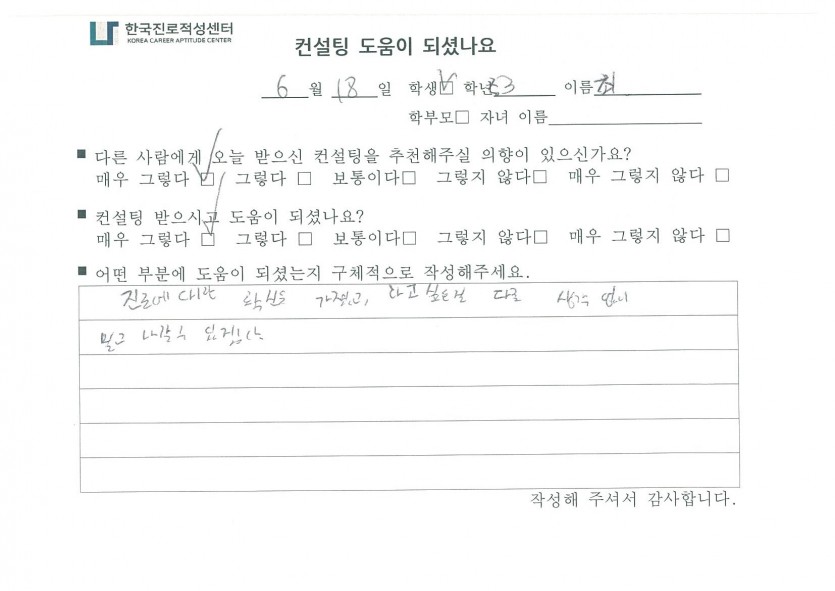 한국진로적성센터
KOREA CAREER APTITUDE CENTER
컨설팅 도움이 되셨나요
6 월 18 일 학생☑ 학년 중3 이름 최
학부모□ 자녀 이름
■ 다른 사람에게 오늘 받으신 컨설팅을 추천해주실 의향이 있으신가요?
매우 그렇다 ☑ 그렇다 □ 보통이다□ 그렇지 않다□ 매우 그렇지 않다 □
■ 컨설팅 받으시고 도움이 되셨나요?
매우 그렇다 ☑ 그렇다 □ 보통이다□ 그렇지 않다□ 매우 그렇지 않다 □
■ 어떤 부분에 도움이 되셨는지 구체적으로 작성해주세요.
진로에 대한 확신을 가졌고, 하고 싶은걸 다른 생각 없이
밀고 나갈수 있게
작성해 주셔서 감사합니다.